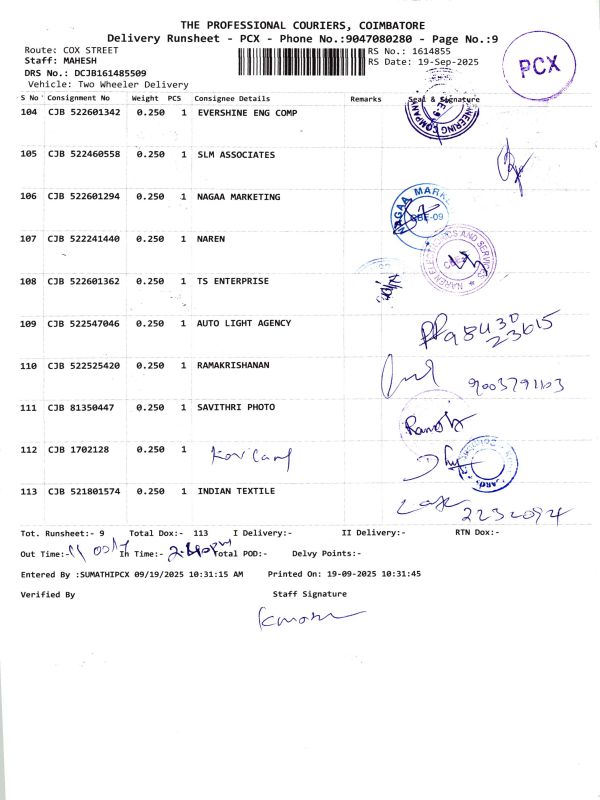 THE PROFESSIONAL COURIERS, COIMBATORE
Delivery Runsheet - PCX - Phone No.:9047080280 - Page No.:9
Route: COX STREET RS No.: 1614855
Staff: MAHESH RS Date: 19-Sep-2025
DRS No.: DCJB161485509
Vehicle: Two Wheeler Delivery
PCX
S No Consignment No Weight PCS Consignee Details Remarks Seal & Signature
104 CJB 522601342 0.250 1 EVERSHINE ENG COMP
105 CJB 522460558 0.250 1 SLM ASSOCIATES
106 CJB 522601294 0.250 1 NAGAA MARKETING
NAGAA MARK
CBE-09
107 CJB 522241440 0.250 1 NAREN
NAREN ELECTRONICS AND SERVICES
108 CJB 522601362 0.250 1 TS ENTERPRISE
109 CJB 522547046 0.250 1 AUTO LIGHT AGENCY
98430
23615
110 CJB 522525420 0.250 1 RAMAKRISHANAN
9003791103
111 CJB 81350447 0.250 1 SAVITHRI PHOTO
112 CJB 1702128 0.250 1
113 CJB 521801574 0.250 1 INDIAN TEXTILE
2232094
Tot. Runsheet:- 9 Total Dox:- 113 I Delivery:- II Delivery:- RTN Dox:-
Out Time:- In Time:- Total POD:- Delvy Points:-
Entered By :SUMATHIPCX 09/19/2025 10:31:15 AM Printed On: 19-09-2025 10:31:45
Verified By Staff Signature